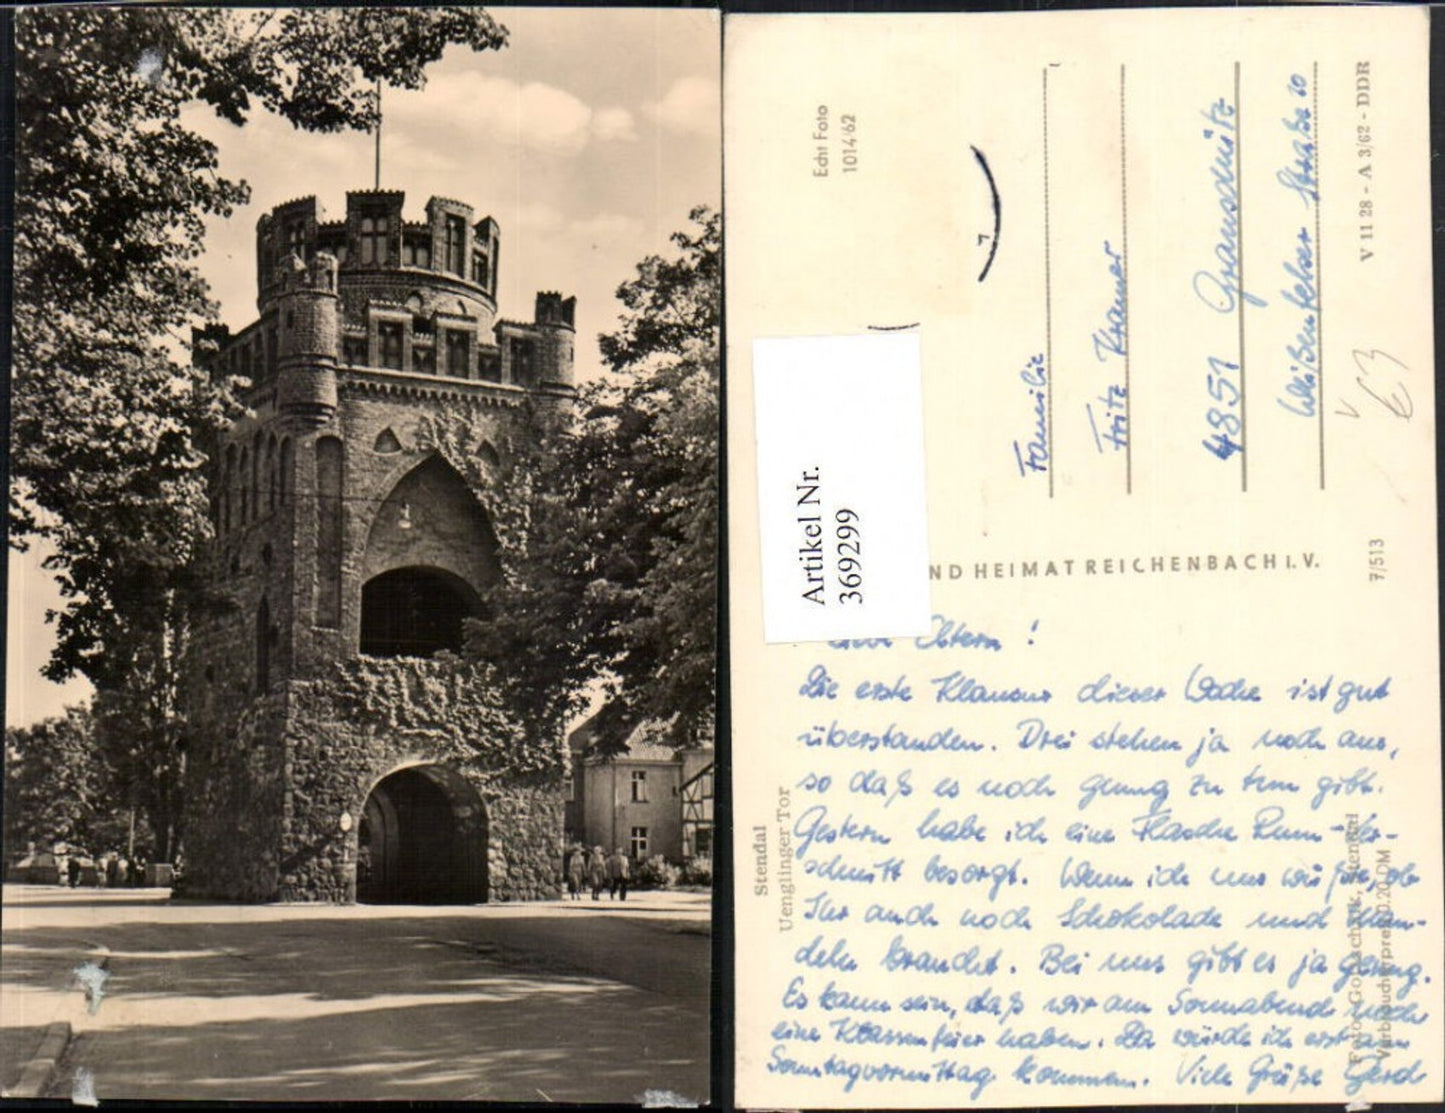 Echt Foto
1014/62
Familie
Fritz Kramer
4851 Granschütz
Weißenfelser Straße 20
V 11 28 - A 3/62 - DDR
63
Artikel Nr.
369299
ND HEIMAT REICHENBACH i. V.
7/513
Stendal
Uenglinger Tor
Eltern!
Die erste Klausur dieser Woche ist gut
überstanden. Drei stehen ja noch aus,
so daß es noch genug zu tun gibt.
Gestern habe ich eine Flasche Rum-Ver-
schnitt besorgt. Wenn ich nur wüßte, ob
Ihr auch noch Schokolade und Man-
deln braucht. Bei uns gibt es ja genug.
Es kann sein, daß wir am Sonnabend noch
eine Klassenfeier haben. Da würde ich erst am
Sonntagvormittag kommen. Viele Grüße Gerd
Stendal
Verbraucherpreis 0,20 DM